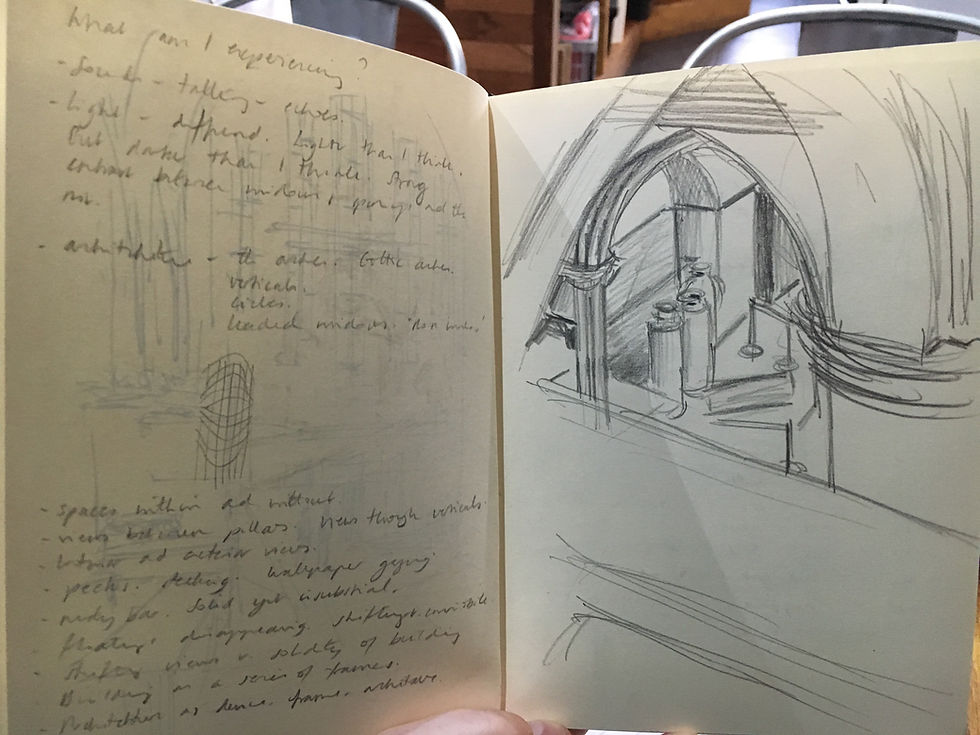 What am I experiencing?
- Sounds - talking - echoes.
- Light - different. Lighter than I think.
But darker than I think. Strong
contrast between windows & and the
- architecture - the arches. Gothic arches.
verticals.
circles.
leaded windows.
- spaces within and without.
- views between pillars. Views through verticals.
- Interior and exterior views.
- peeks. peeking. Wallpaper
- Solid yet insubstantial.
floating, disappearing, shifting, invisible
- Shifting views v. solidity of building
Building as a series of frames.
- Architecture as device, frame, architrave.